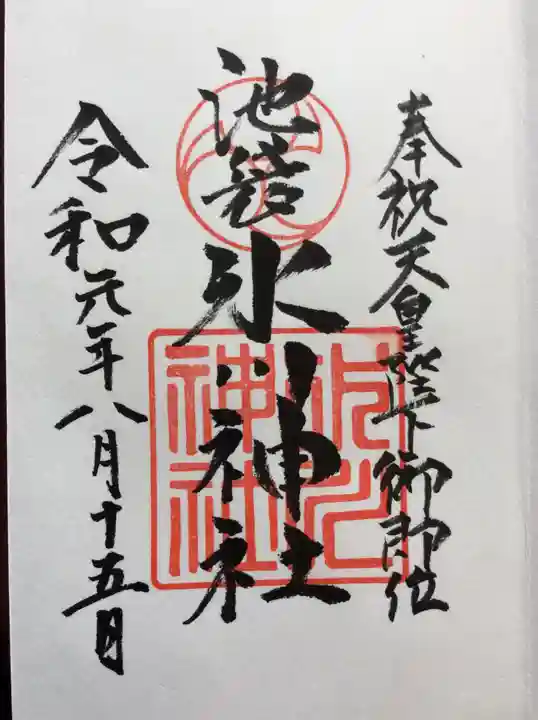 奉祝天皇陛下御即位
池袋氷川神社
氷川神社
令和元年八月十五日